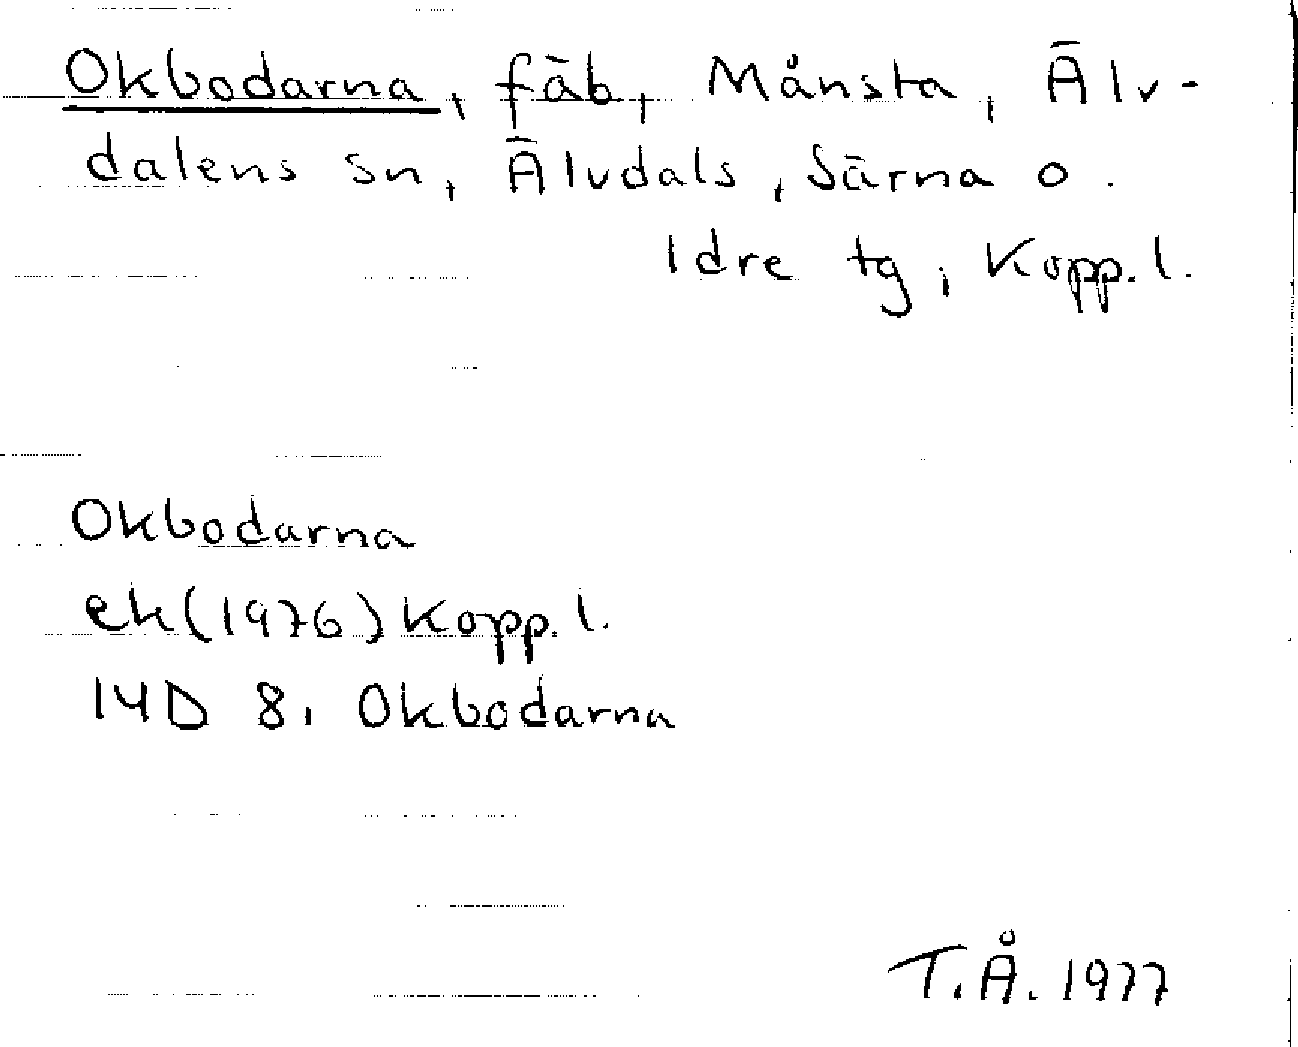 Okbodarna, fäb, Månsta, Älv-
dalens sn, Älvdals, Särna o.
Idre tg, Kopp. l.
Okbodarna
ek (1976) Kopp. l.
14D 8, Okbodarna
T.Å. 1977